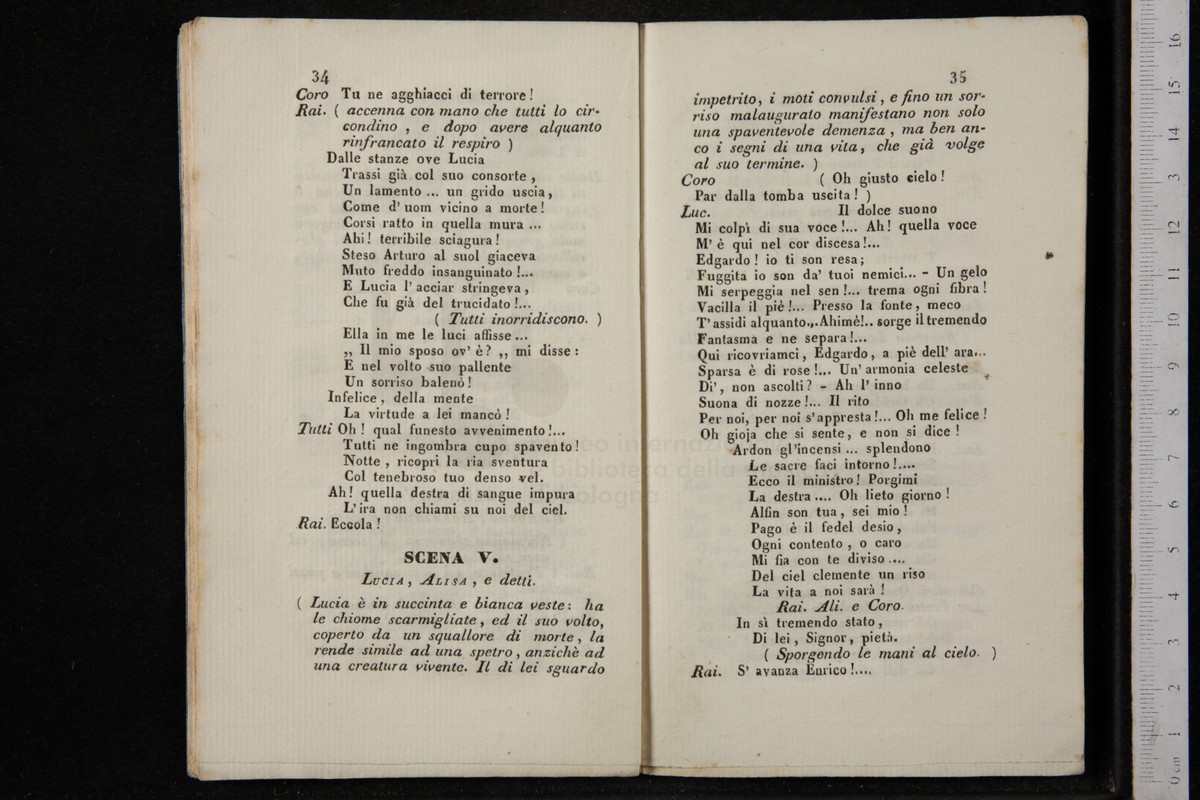 34
Coro Tu ne agghiacci di terrore!
Rai. ( accenna con mano che tutti lo cir-
condino , e dopo avere alquanto
rinfrancato il respiro )
Dalle stanze ove Lucia
Trassi già col suo consorte ,
Un lamento ... un grido uscia,
Come d' uom vicino a morte!
Corsi ratto in quella mura ...
Ahi! terribile sciagura!
Steso Arturo al suol giaceva
Muto freddo insanguinato!...
E Lucia l' acciar stringeva,
Che fu già del trucidato!...
( Tutti inorridiscono. )
Ella in me le luci affisse ...
,, Il mio sposo ov' è? ,, mi disse:
E nel volto suo pallente
Un sorriso balenò!
Infelice, della mente
La virtude a lei mancò!
Tutti Oh! qual funesto avvenimento!...
Tutti ne ingombra cupo spavento!
Notte , ricopri la ria sventura
Col tenebroso tuo denso vel.
Ah! quella destra di sangue impura
L'ira non chiami su noi del ciel.
Rai. Eccola!
SCENA V.
LUCIA, ALISA, e detti.
( Lucia è in succinta e bianca veste: ha
le chiome scarmigliate, ed il suo volto,
coperto da un squallore di morte, la
rende simile ad una spetro, anzichè ad
una creatura vivente. Il di lei sguardo
35
impetrito, i moti convulsi, e fino un sor-
riso malaugurato manifestano non solo
una spaventevole demenza, ma ben an-
co i segni di una vita, che già volge
al suo termine. )
Coro ( Oh giusto cielo!
Par dalla tomba uscita! )
Luc. Il dolce suono
Mi colpì di sua voce!... Ah! quella voce
M' è qui nel cor discesa!...
Edgardo! io ti son resa;
Fuggita io son da' tuoi nemici... - Un gelo
Mi serpeggia nel sen!... trema ogni fibra!
Vacilla il piè!... Presso la fonte, meco
T' assidi alquanto... Ahimè!.. sorge il tremendo
Fantasma e ne separa!...
Qui ricovriamci, Edgardo, a piè dell' ara...
Sparsa è di rose!... Un' armonia celeste
Di', non ascolti? - Ah l' inno
Suona di nozze!... Il rito
Per noi, per noi s'appresta!... Oh me felice!
Oh gioja che si sente, e non si dice!
Ardon gl'incensi ... splendono
Le sacre faci intorno!....
Ecco il ministro! Porgimi
La destra.... Oh lieto giorno!
Alfin son tua, sei mio!
Pago è il fedel desio,
Ogni contento, o caro
Mi fia con te diviso ....
Del ciel clemente un riso
La vita a noi sarà!
Rai. Ali. e Coro.
In sì tremendo stato,
Di lei, Signor, pietà.
( Sporgendo le mani al cielo. )
Rai. S' avanza Enrico!....